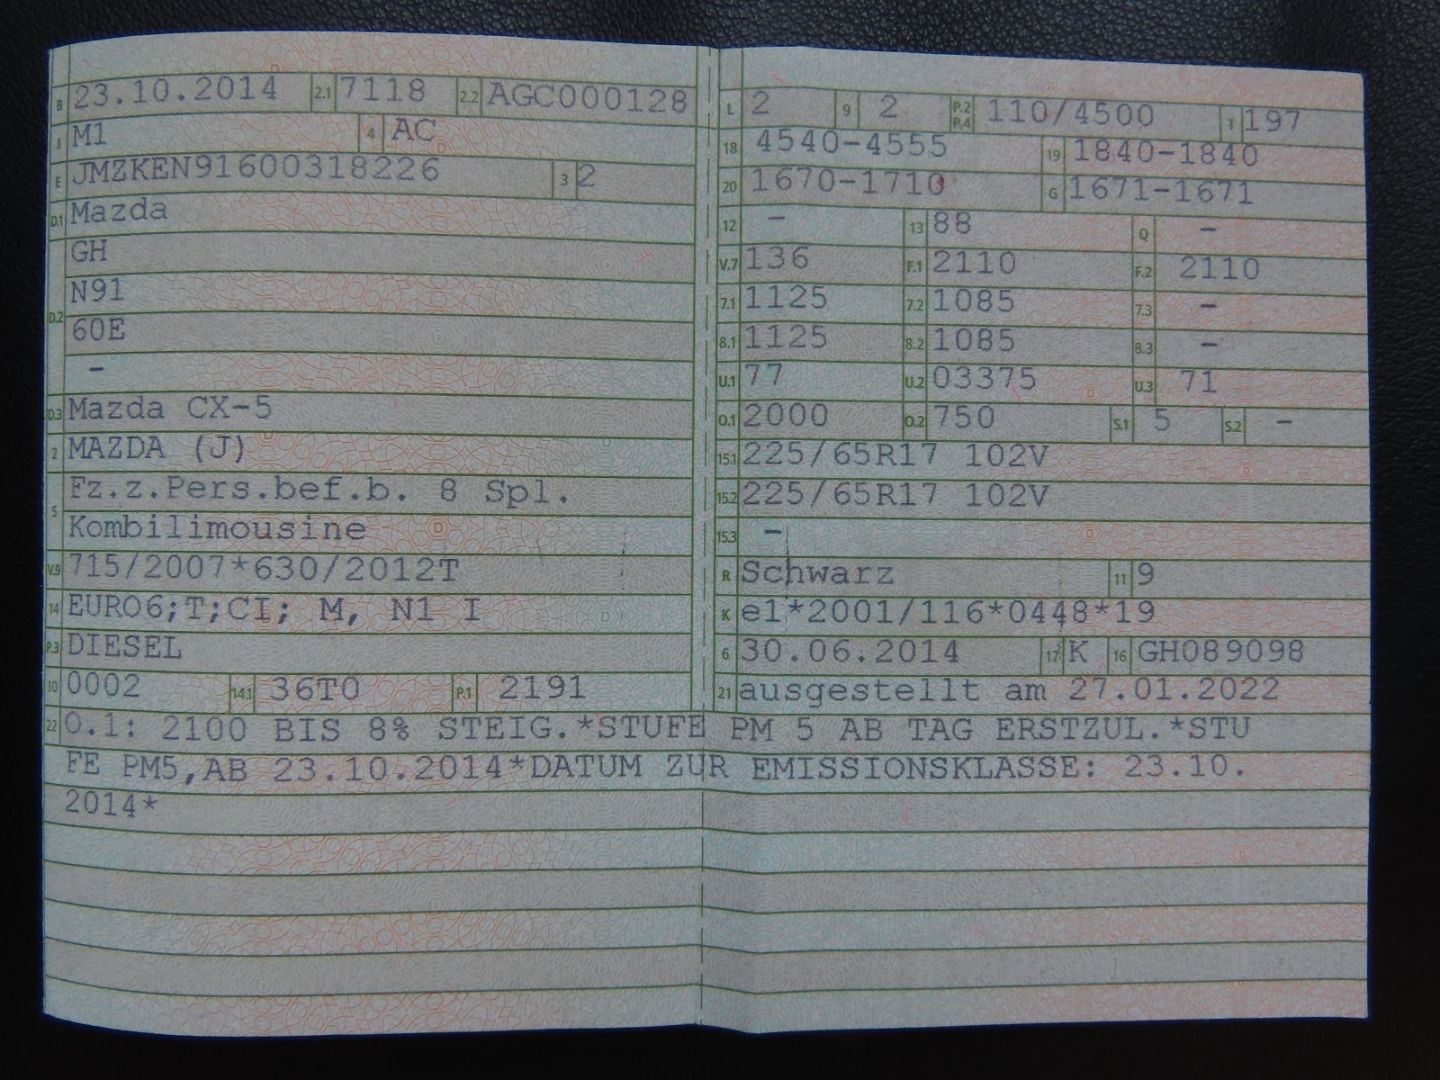 B 23.10.2014 2.1 7118 2.2 AGC000128
J M1 4 AC
E JMZKEN91600318226 3 2
D.1 Mazda
GH
D.2 N91
60E
-
D.3 Mazda CX-5
2 MAZDA (J)
5 Fz.z.Pers.bef.b. 8 Spl.
Kombilimousine
V.9 715/2007*630/2012T
14 EURO6;T;CI; M, N1 I
P.3 DIESEL
10 0002 14.1 36T0 P.1 2191
L 2 9 2 P.2 P.4 110/4500 T 197
18 4540-4555 19 1840-1840
20 1670-1710 G 1671-1671
12 - 13 88 Q -
V.7 136 F.1 2110 F.2 2110
7.1 1125 7.2 1085 7.3 -
8.1 1125 8.2 1085 8.3 -
U.1 77 U.2 03375 U.3 71
O.1 2000 O.2 750 S.1 5 S.2 -
15.1 225/65R17 102V
15.2 225/65R17 102V
15.3 -
R Schwarz 11 9
K e1*2001/116*0448*19
6 30.06.2014 17 K 16 GH089098
21 ausgestellt am 27.01.2022
22 O.1: 2100 BIS 8% STEIG.*STUFE PM 5 AB TAG ERSTZUL.*STU
FE PM5,AB 23.10.2014*DATUM ZUR EMISSIONSKLASSE: 23.10.
2014*